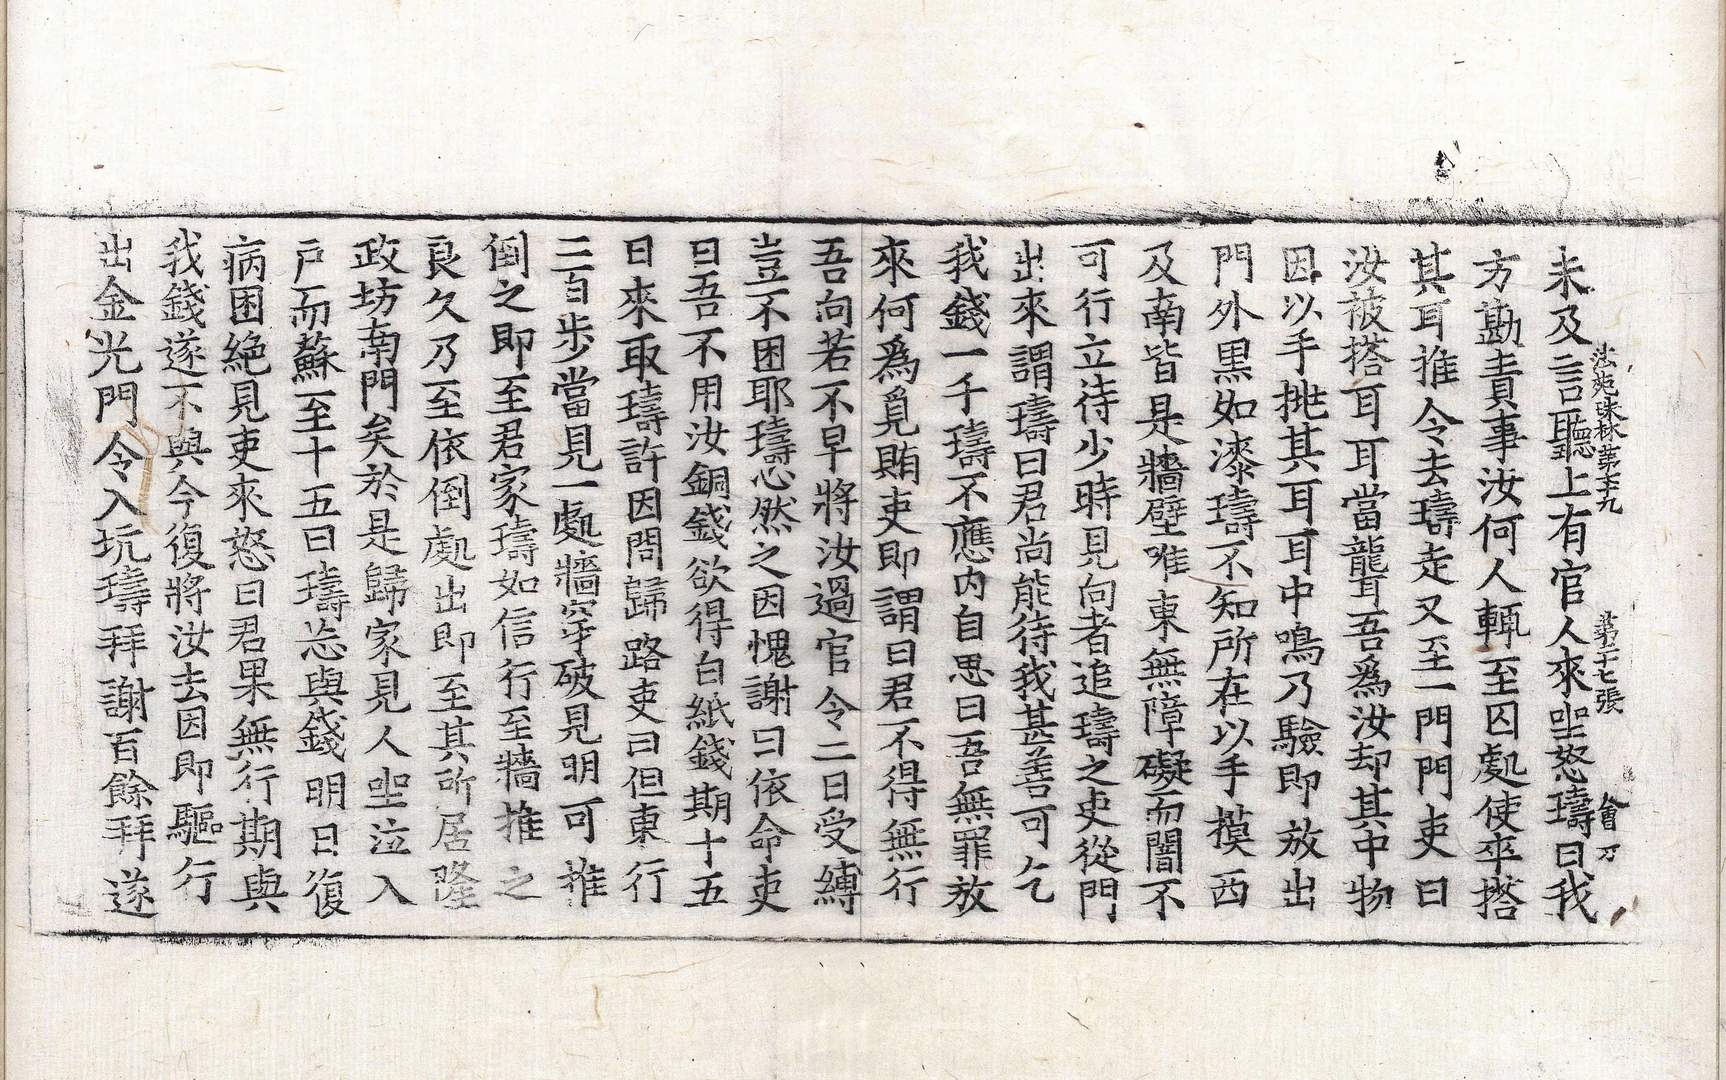 法苑珠林第七十九 第十七張 會刀
未及言聽上有官人來坐怒璹曰我
方勘責事汝何人輒至囚處使卒搭
其耳推令去璹走又至一門門吏曰
汝被搭耳耳當聾吾爲汝却其中物
因以手挑其耳耳中鳴乃驗即放出
門外黑如漆璹不知所在以手摸西
及南皆是牆壁唯東無障礙而闇不
可行立待少時見向者追璹之吏從門
出來謂璹曰君尚能待我甚善可乞
我錢一千璹不應内自思曰吾無罪放
來何爲覓賄吏即謂曰君不得無行
吾向若不早將汝過官令二日受縛
豈不困耶璹心然之因愧謝曰依命吏
曰吾不用汝銅錢欲得白紙錢期十五
日來取璹許因問歸路吏曰但東行
二百步當見一處牆穿破見明可推
倒之即至君家璹如信行至牆推之
良久乃至依倒處出即至其所居隆
政坊南門矣於是歸家見人坐泣入
戶而蘇至十五日璹忘與錢明日復
病困絶見吏來怒曰君果無行期與
我錢遂不與今復將汝去因即驅行
出金光門令入坑璹拜謝百餘拜遂